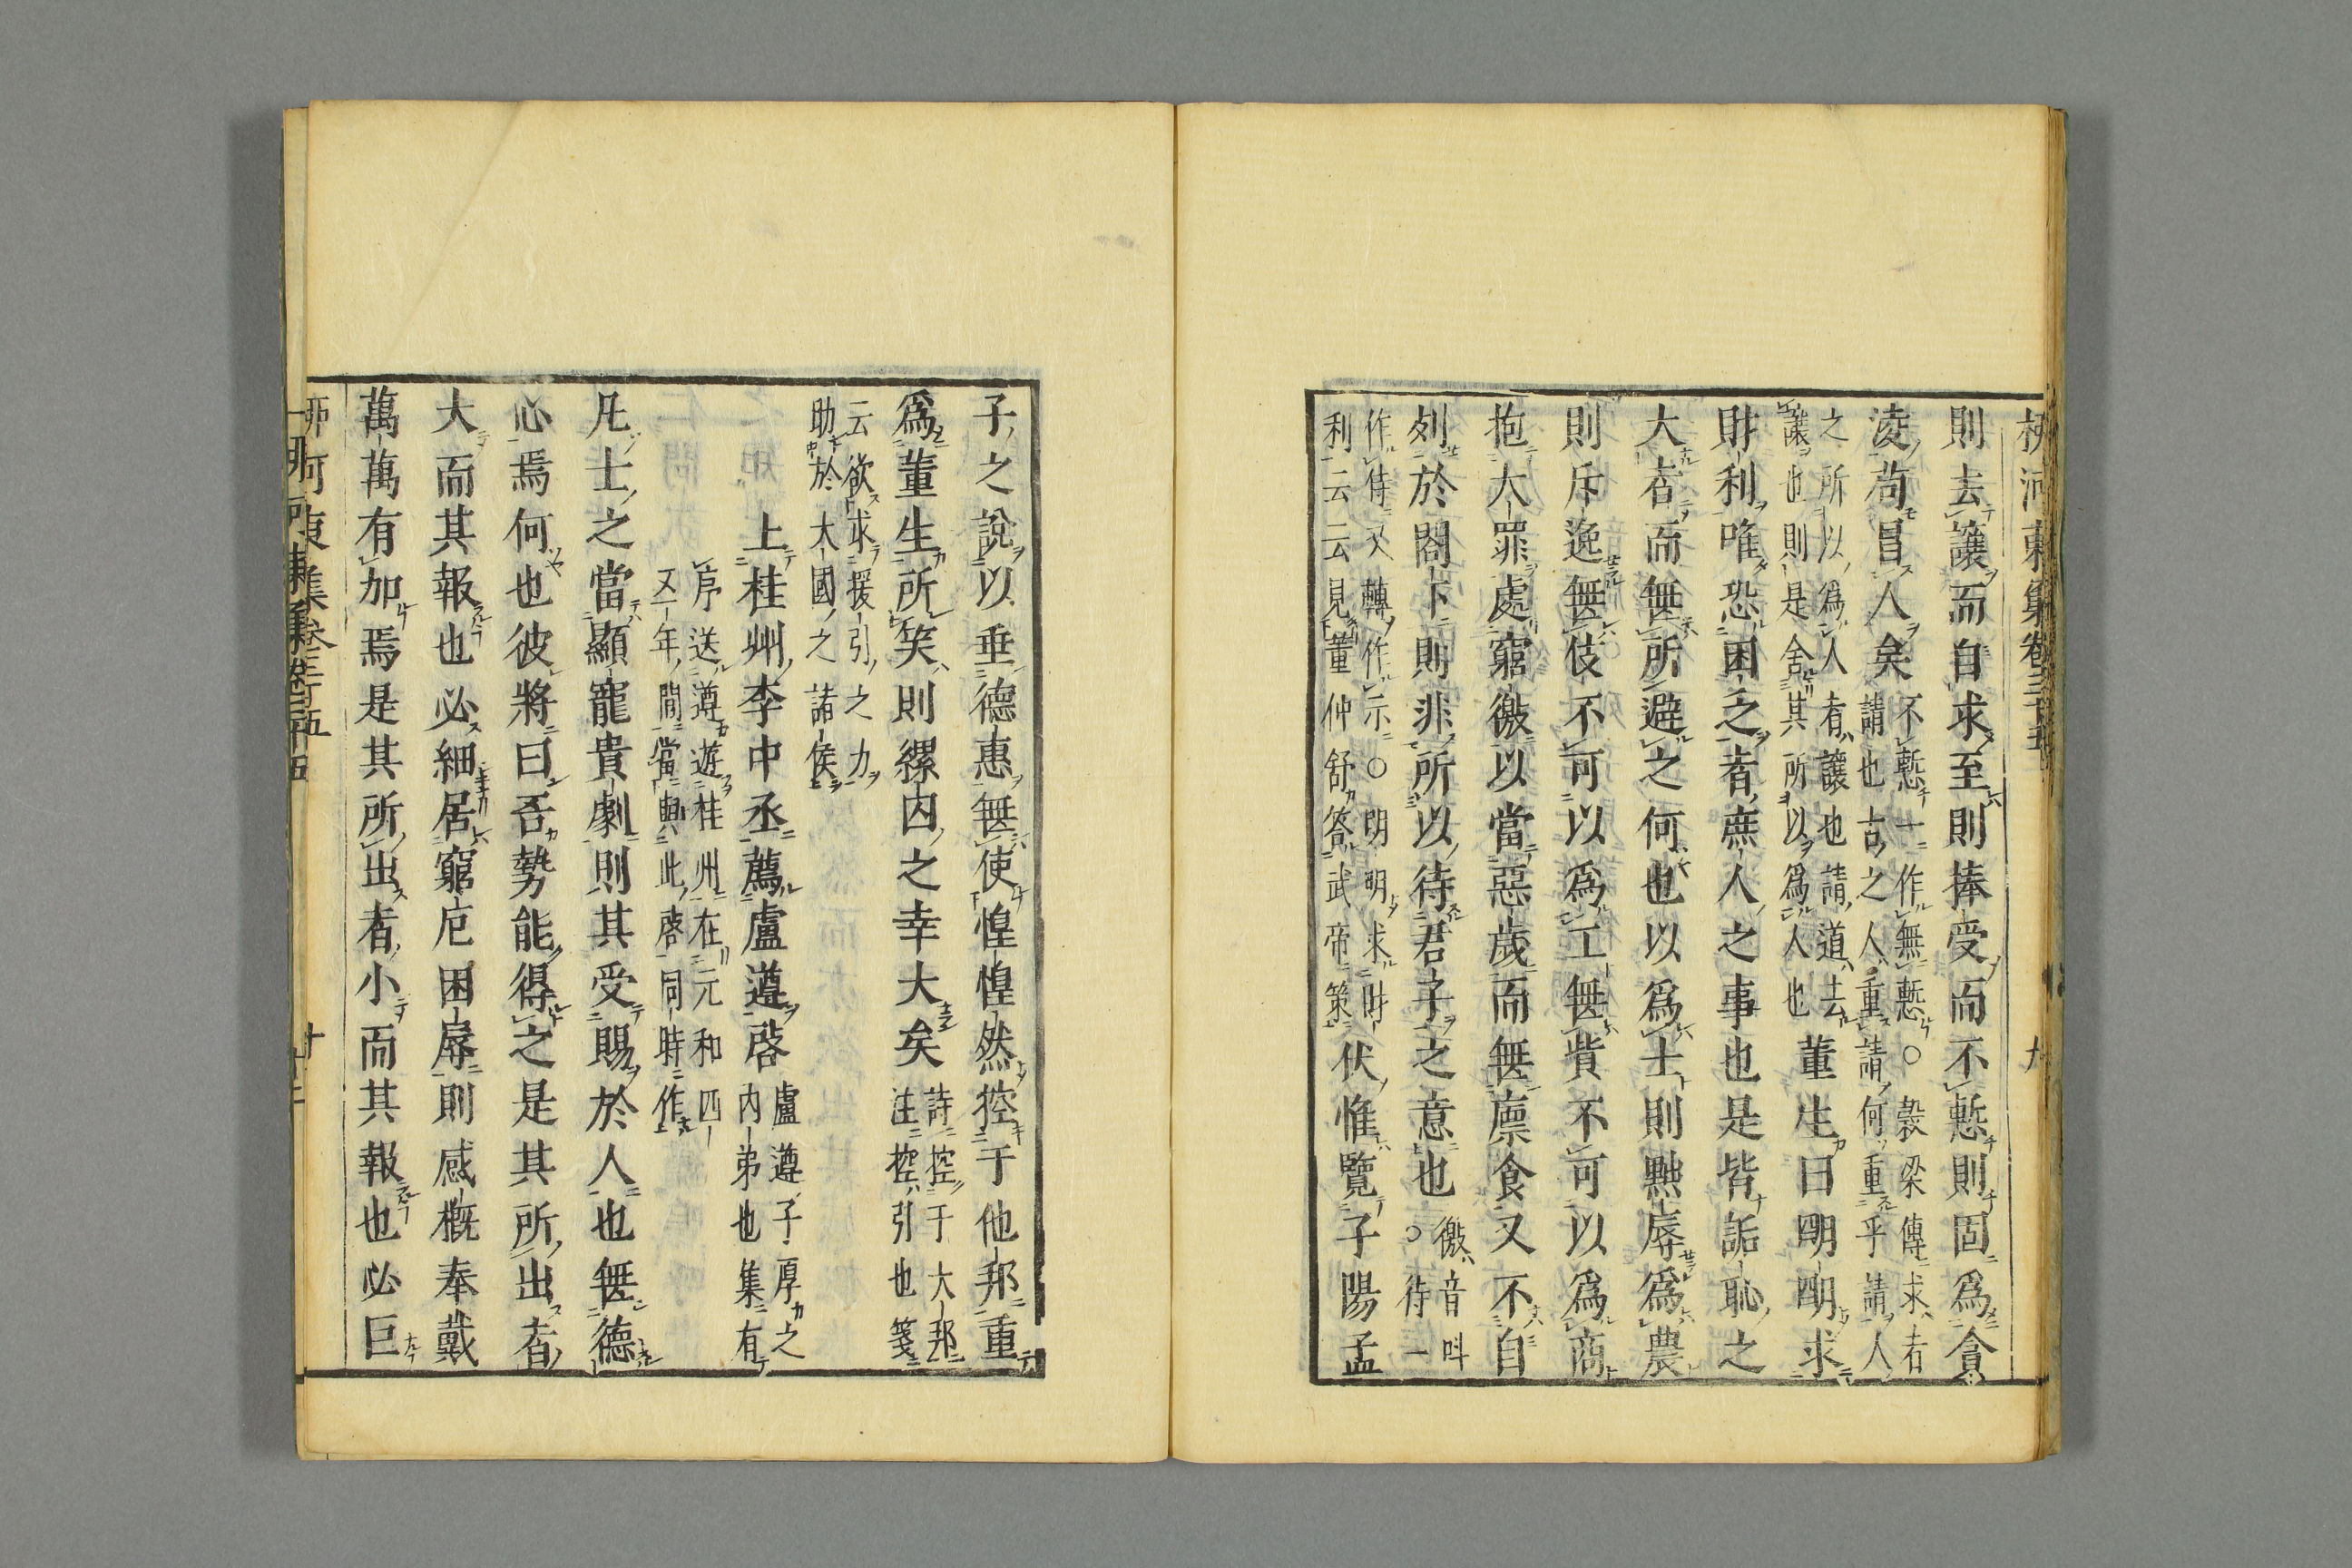 柳河東集卷三十五 九
則去讓而自求至則捧受而不慙則固爲貪
凌苟冒人矣不慙一作無慙○穀梁傳求者
請也古之人重請何重乎請人
之所以爲人者讓也請道去
讓也則是舍其所以爲人也董生曰明明求
財利唯恐困乏者庶人之事也是皆詬恥之
大者而無所避之何也以爲士則黜辱爲農
則斥逸無伎不可以爲工無貲不可以爲商
抱大罪處窮徼以當惡歲而無廩食又不自
列於閣下則非所以待君子之意也徼音叫
○待一
作侍又轉作示○明明求財
利云云見董仲舒答武帝策伏惟覽子陽孟
子之說以垂德惠無使惶惶然控于他邦重
爲董生所笑則縲囚之幸大矣詩控于大邦
注控引也箋
云欲求援引之力
助於大國之諸侯
上桂州李中丞薦盧遵啓盧遵子厚之
内弟也集有
序送遵遊桂州在元和四
又年間當與此啓同時作
凡士之當顯寵貴劇則其受賜於人也無德
心焉何也彼將曰吾勢能得之是其所出者
大而其報也必細居窮戹困辱則感槪奉戴
萬萬有加焉是其所出者小而其報也必巨
柳河東集卷三十五 十